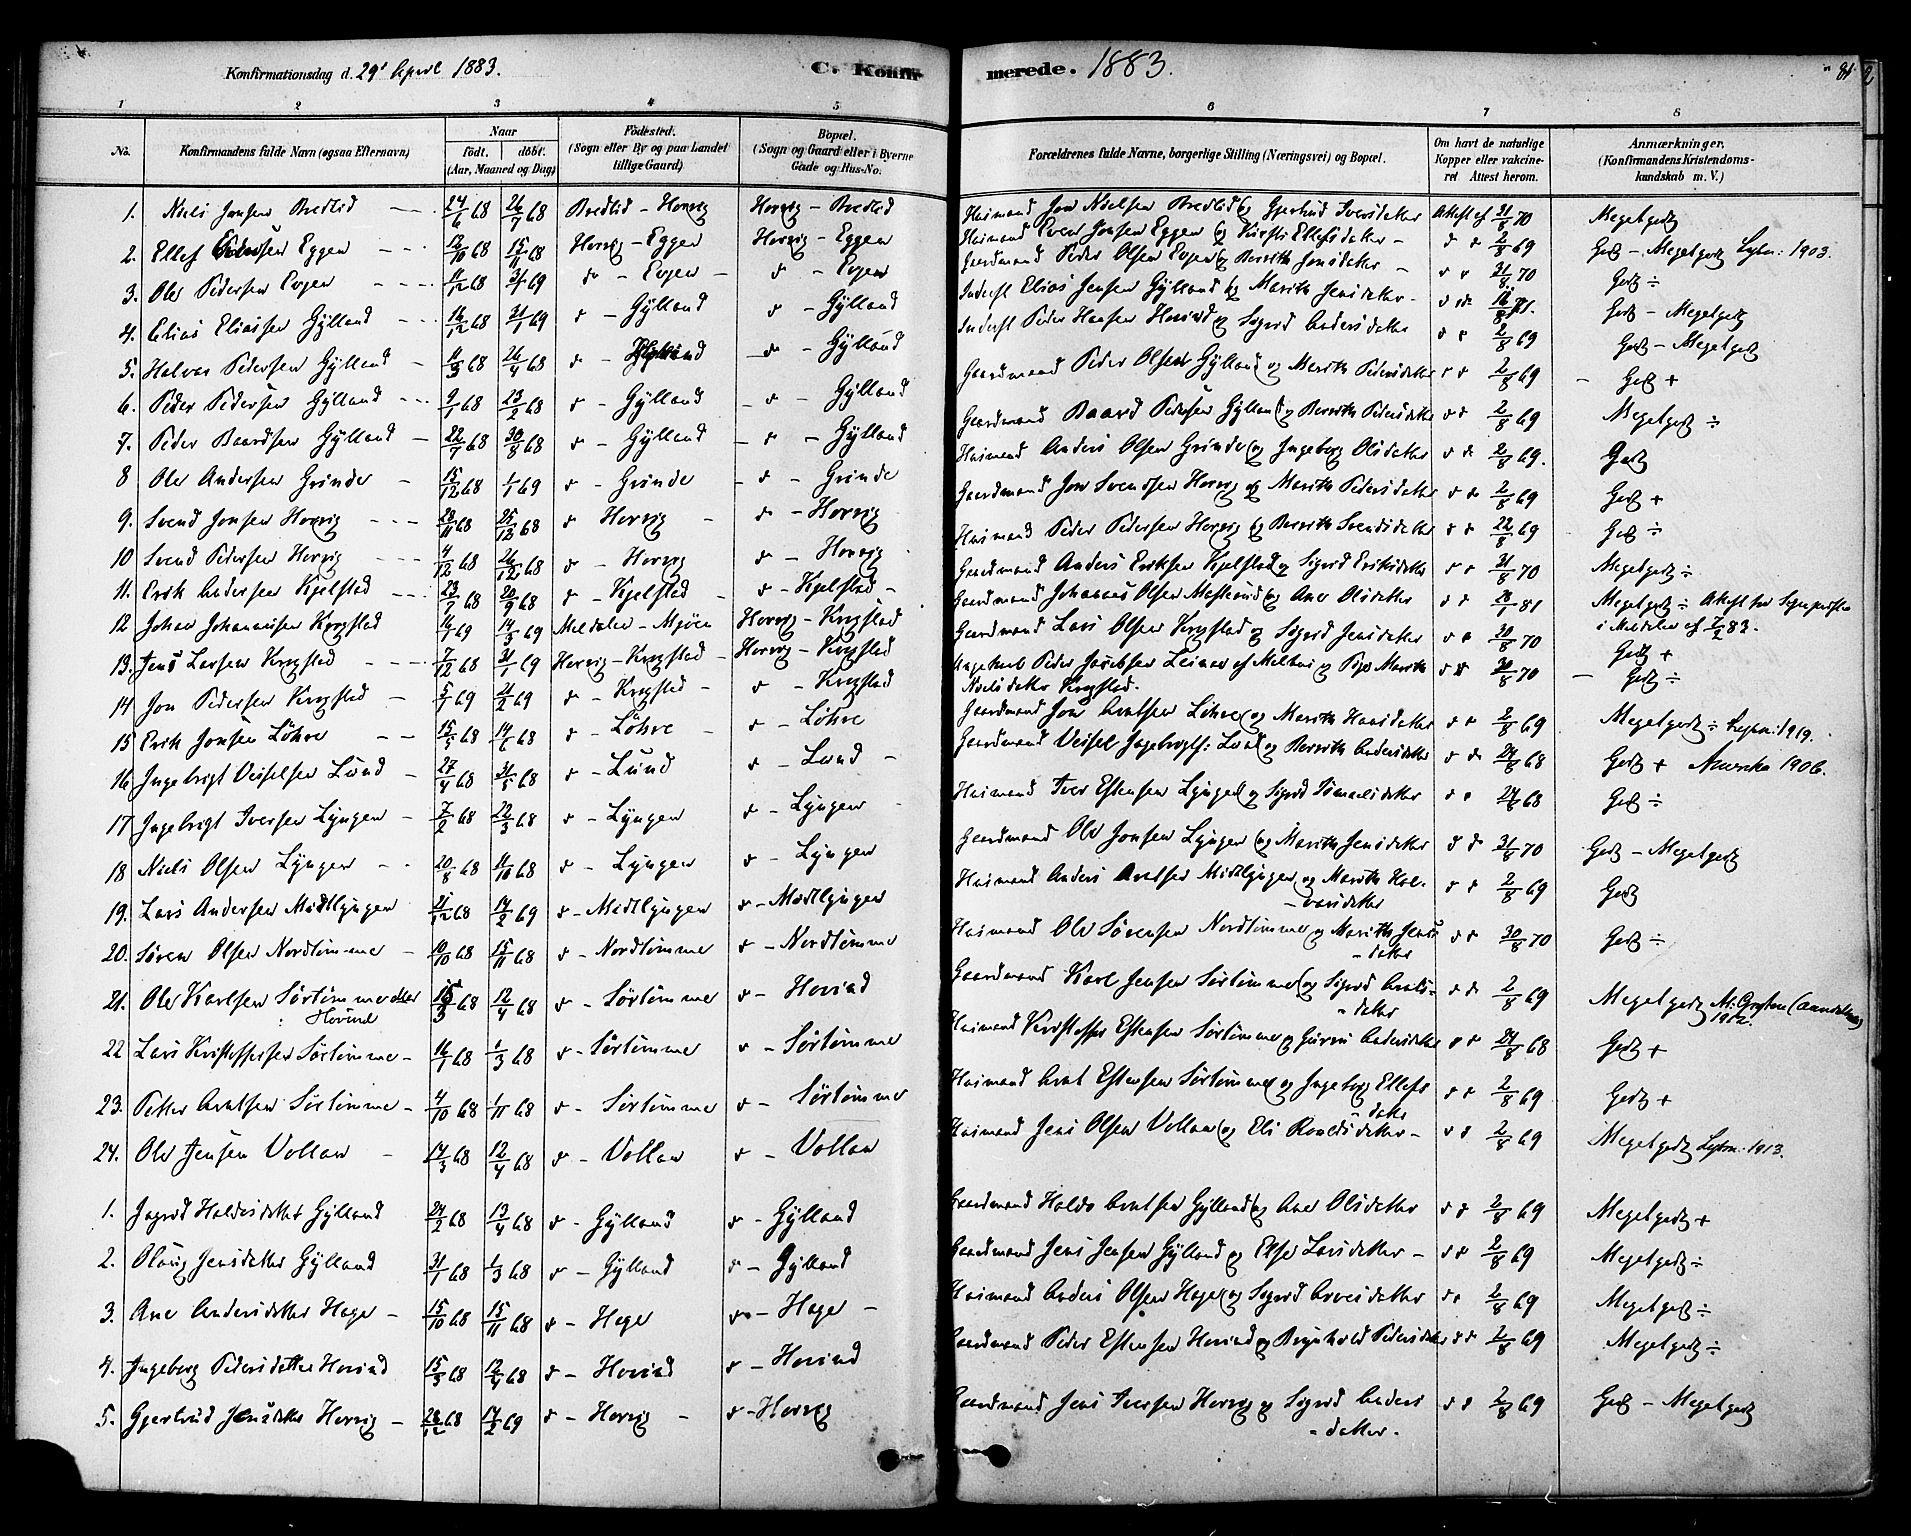 Konfirmationsdag d. 29' April 1883.
C. Konfirmerede. 1883.
81
1 2 3 4 5 6 7 8
No. Konfirmandens fulde Navn (ogsaa Efternavn) Naar født. døbt. (Aar, Maaned og Dag) Födested. (Sogn eller By og paa Landet tillige Gaard) Bopæl. (Sogn og Gaard eller i Byerne Gade og Hus-No. Forældrenes fulde Navne, borgerlige Stilling (Næringsvei) og Bopæl. Om havt de naturlige Kopper eller vakcineret Attest herom. Anmærkninger. (Konfirmandens Kristendomskundskab m. V.)
1. Niels Jonsen Bredlid 24/6 68 26/7 68 Bredlid - Horvig Horvig - Bredlid Husmand Jon Nielsen Bredlid og Gjertrud Iversdatter Attest af 31/8 70 Megetgodt
2. Ellef Evensen Eggen 12/10 68 15/11 68 Horvig - Eggen Horvig - Eggen Husmand Even Jonsen Eggen og Kirsti Ellefsdatter - d d 2/8 69 Godt - Megetgodt 1903.
3. Ole Pedersen Evjen 11/12 68 31/1 69 d - Evjen - d - Evjen Gaardmand Peder Olsen Evjen og Bereth Jonsdatter - d d 31/8 70 Godt ÷
4. Elias Eliassen Gylland 16/12 68 31/1 69 d - Gylland d - Gylland Inderst Elias Jensen Gylland og Marith Jensdatter - d d 16/8 71. Godt - Megetgodt
5. Halvor Pedersen Gylland - 11/3 68 26/4 68 d - Gylland d - Gylland Inderst Peder Hansen Hovind og Sigrid Andersdatter d d 2/8 69 Godt - Megetgodt
6. Peder Pedersen Gylland 9/1 68 23/2 68 d - Gylland d - Gylland Gaardmand Peder Olsen Gylland og Marith Pedersdatter d d 2/8 69 - Godt +
7. Peder Baardsen Gylland - 22/7 68 30/8 68 d - Gylland d - Gylland Gaardmand Baard Pedersen Gylland og Bereth Pedersdatter d d 2/8 69 Megetgodt ÷
8 Ole Andersen Grinde - 15/12 68 1/1 69 d - Grinde d - Grinde Husmand Anders Olsen Grinde og Ingeborg Olsdatter d d 2/8 69. Godt
9. Svend Jonsen Horvig 28/11 68 25/12 68 d Horvig - d - Horvig Gaardmand Jon Svendsen Horvig og Marith Pedersdatter d d 2/8 69 Godt +
10 Svend Pedersen Horvig 4/12 68 26/12 68 d - Horvig d - Horvig Husmand Peder Pedersen Horvig og Bereth Svendsdatter d d 22/8 69 Godt ÷
11. Erik Andersen Kjelstad 23/7 68 20/9 68 d - Kjelstad - d - Kjelstad - Gaardmand Anders Eriksen Kjelstad og Sigrid Eriksdatter d d 31/8 70 Megetgodt ÷
12 Johan Johannesen Krogstad 16/1 69 14/3 69 Meldalen - Mjøen Horvig - Krogstad Gaardmand Johannes Olsen og Ane Olsdatter d d 20/1 81 Megetgodt ÷ Attest fra Sognepresten
i Meldalen af 7/2 83.
13. Jens Larsen Krogstad 7/12 68 31/1 69 Horvig - Krogstad - Horvig - Krogstad Gaardmand Lars Olsen Krogstad og Sigrid Jensdatter d d 30/8 70 Godt +
14 Jon Pedersen Krogstad - 5/1 69 21/2 69 d - Krogstad - d - Krogstad Ungekarl Peder Jacobsen af og Pige Marith d d 30/8 70 - Godt ÷
Nielsdatter Krogstad.
15 Erik Jonsen Löhre 15/5 68 14/6 68 d - Löhre - d - Löhre Gaardmand Jon Arntsen Löhre og Marith Hansdatter d d 2/8 69 Megetgodt ÷ 1919.
16 Ingebrigt Veiselsen Lund - 27/4 68 31/5 68 d - Lund d - Lund - Gaardmand Veisel Ingebrigts: Lund og Bereth Andersdatter d d 24/8 68 Godt + Amerika 1906.
17 Ingebrigt Iversen Lyngen - 7/2 68 22/3 68 d - Lyngen d - Lyngen - Husmand Iver Estensen Lyngen og Sigrid d d 24/8 68 Godt ÷
18 Niels Olsen Lyngen 20/8 68 11/10 68 d - Lyngen d - Lyngen Gaardmand Ole Jonsen Lyngen og Marith Jensdatter d d 31/8 70 Godt - Megetgodt
19. Lars Andersen Midtlyngen 21/12 68 14/2 69 d - Midtlyngen d - Midtlyngen Husmand Anders Arntsen Midtlyngen og Marith Hal-
vorsdatter d d 2/8 69 Godt
20. Sören Olsen Nordtömme - 10/10 68 15/11 68 d - Nordtömme d - Nordtömme Husmand Ole Sörensen Nordtömme og Marith Jens-
datter d d 30/8 70 Godt ÷
21. Ole Karlsen Sörtömme eller 15/3 68 12/4 68 d - Sörtömme d - Hovind Gaardmand Karl Jensen Sörtömme og Sigrid Arnts-
Hovind datter d d 2/8 69 Megetgodt 1912.
22 Lars Kristoffersen Sörtömme - 16/1 68 1/3 68 d - Sörtömme d - Sörtömme Husmand Kristoffer Estensen Sörtömme og Guren Andersdatter d d 24/8 68 Godt +
23. Petter Arntsen Sörtömme - 4/10 68 1/11 68 d - Sörtömme d - Sörtömme Husmand Arnt Estensen Sörtömme og Ingeborg Ellefs-
datter d d 2/8 69 Godt +
24. Ole Jensen Vollan - 14/3 68 12/4 68 d - Vollan d - Vollan Husmand Jens Olsen Vollan og Eli Roaldsdatter - d d 2/8 69 Megetgodt 1913.
1. Ingrid Haldosdatter Gylland 24/2 68 13/4 68 d - Gylland d - Gylland Gaardmand Haldo Arntsen Gylland og Ane Olsdatter d d 2/8 69 Megetgodt +
2. Olaug Jensdatter Gylland 31/1 68 1/3 68 d - Gylland d - Gylland Gaardmand Jens Jensen Gylland og Else Larsdatter - d d 2/8 69 Megetgodt ÷
3. Ane Andersdatter Hage - 15/10 68 15/11 68 d - Hage d - Hage - Husmand Anders Olsen Hage og Sigrid d d 2/8 69 Megetgodt ÷
4. Ingeborg Pedersdatter Hovind 15/3 68 12/4 68 d - Hovind d - Hovind Gaardmand Peder Estensen Hovind og Brynhold Pedersdatter d d 2/8 69 Megetgodt ÷
5. Gjertrud Jensdatter Horvig - 28/12 68 14/2 69 d - Horvig - d - Horvig Gaardmand Jens Iversen Horvig og Sigrid Anders-
datter. d d 2/8 69 Godt - Megetgodt